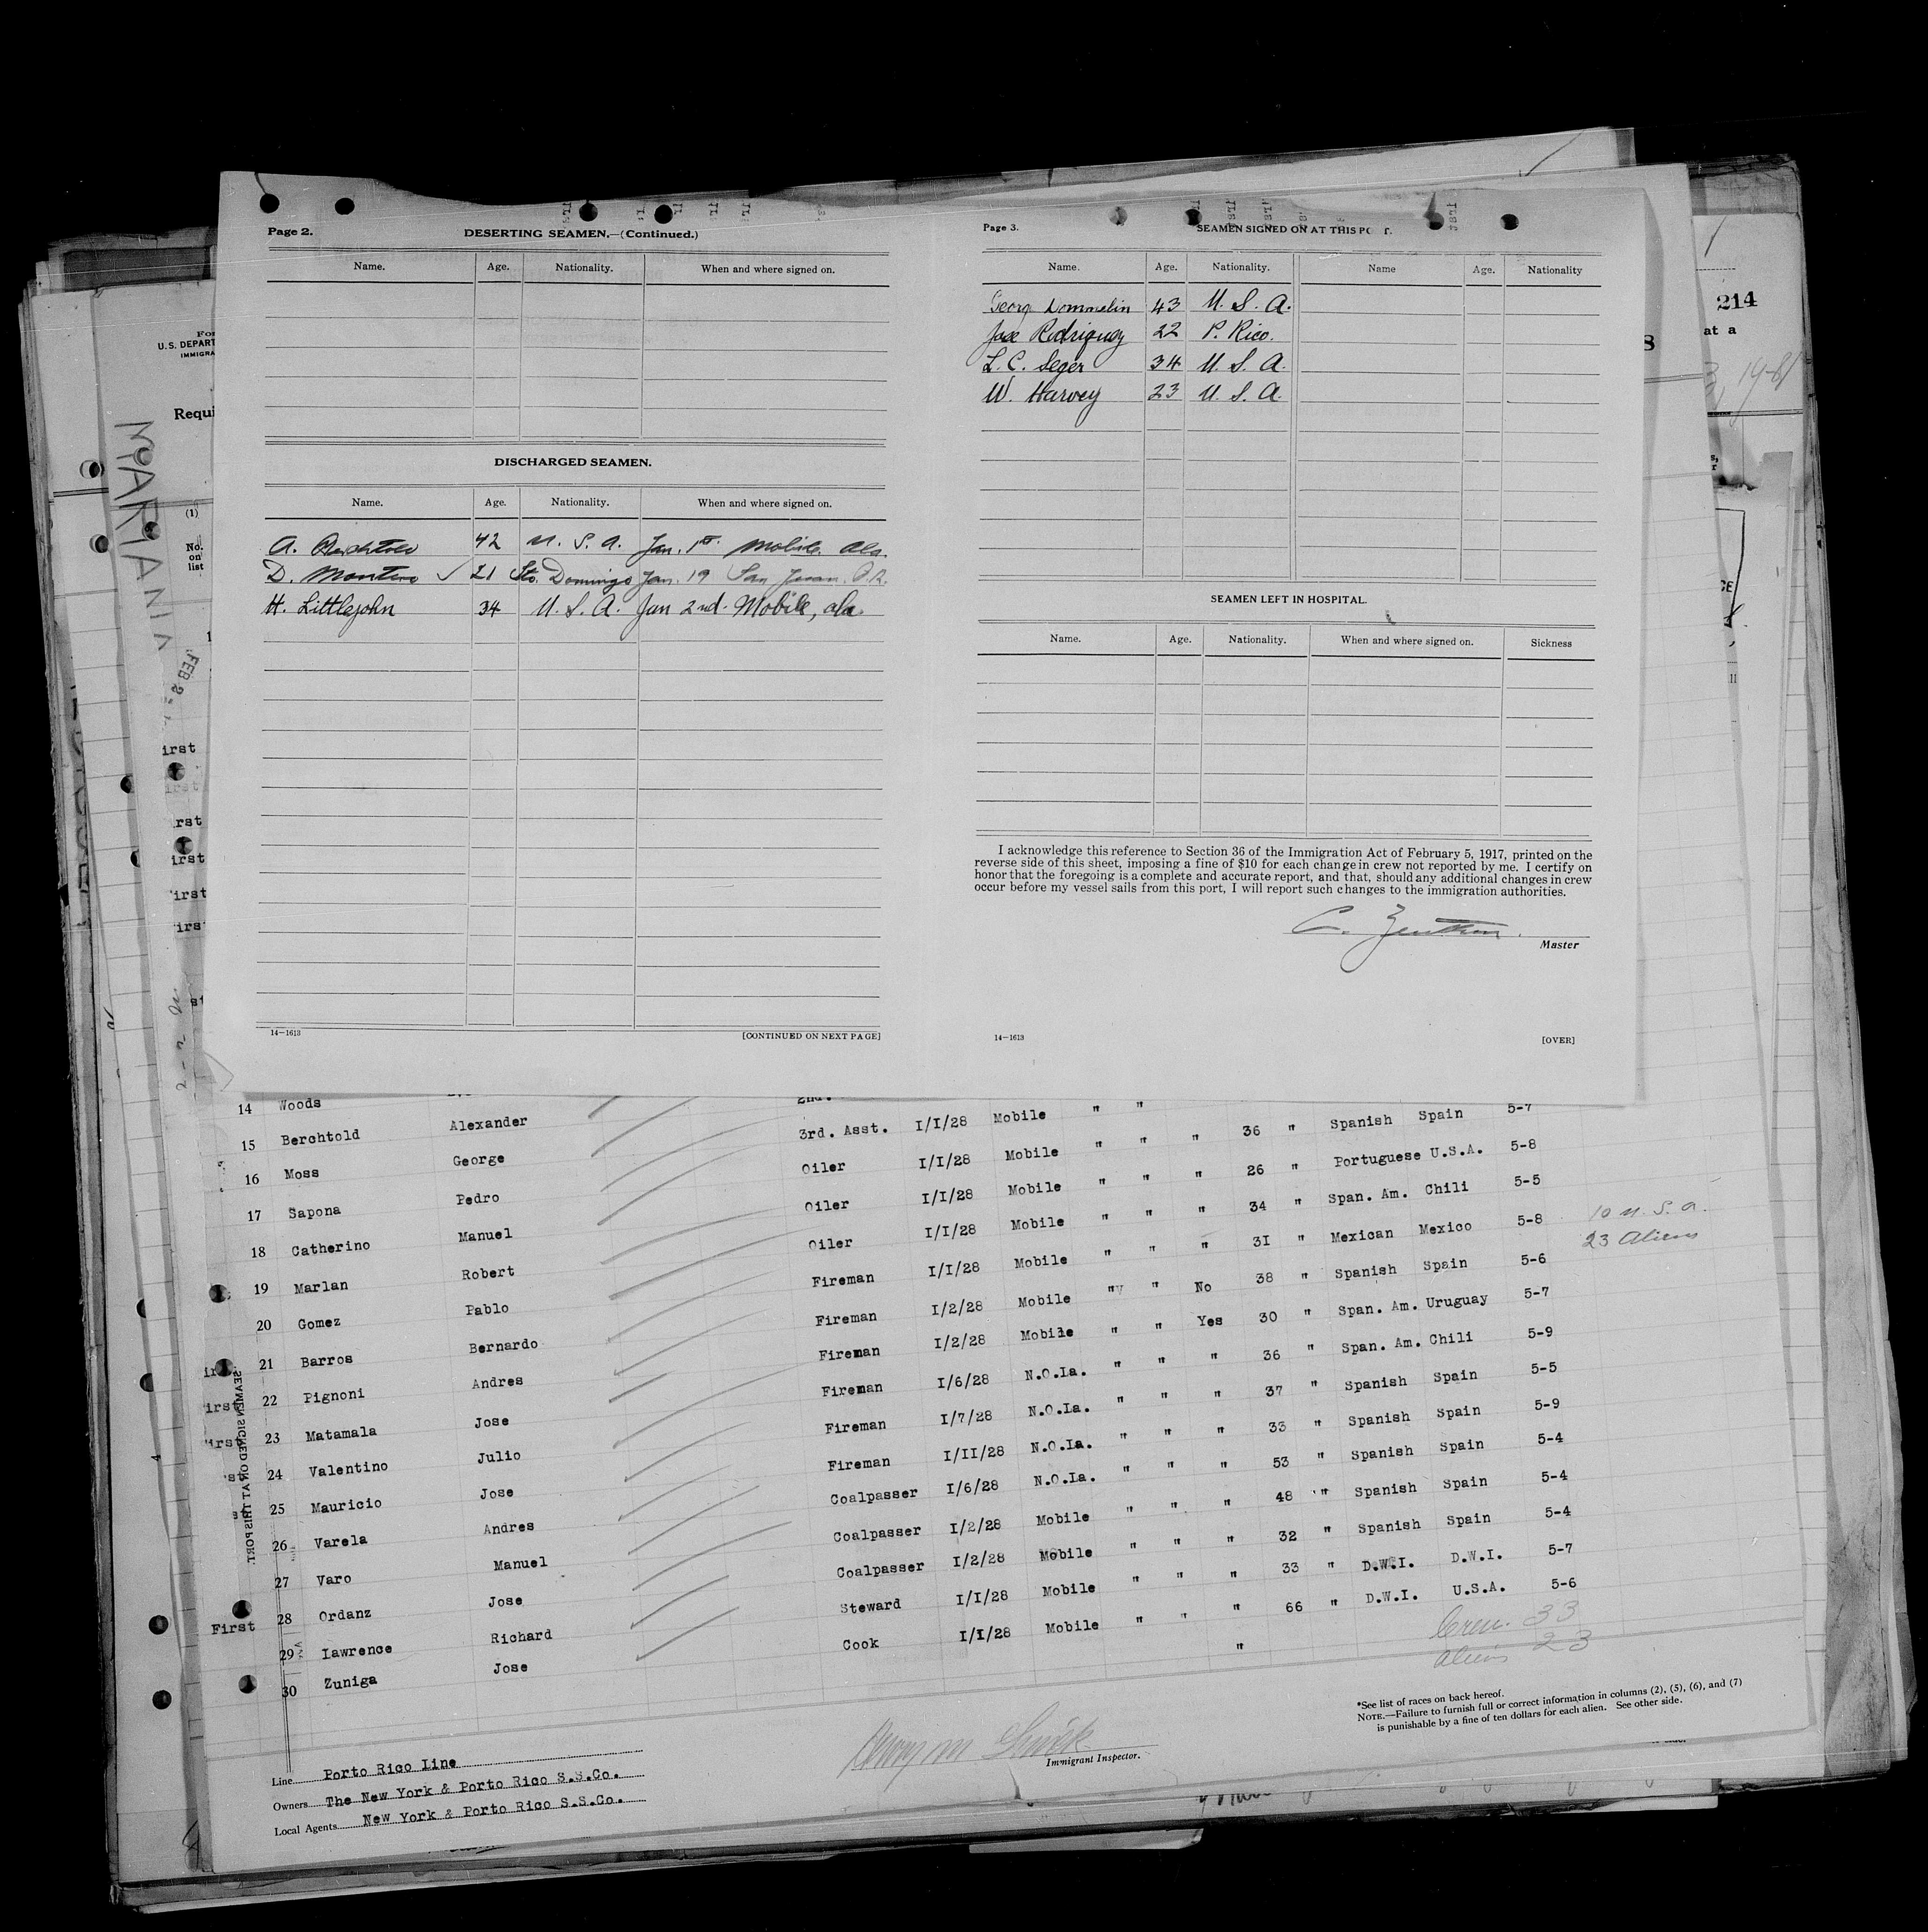 Page 2.
DESERTING SEAMEN.—(Continued.)
Name. Age. Nationality. When and where signed on.
DISCHARGED SEAMEN.
Name. Age. Nationality. When and where signed on.
A. 42 U. S. A. Jan. 1st. Mobile Ala.
D. Montero ✓ 21 Sto. Domingo Jan. 19 San Juan. P.R.
H. Littlejohn 34 U. S. A. Jan 2nd. Mobile, ala.
14—1613
[CONTINUED ON NEXT PAGE]
Page 3.
SEAMEN SIGNED ON AT THIS PORT.
Name. Age. Nationality. Name Age. Nationality
Georg 43 U. S. A.
Jose Rodriquez 22 P. Rico.
L. C. Seger 34 U. S. A.
W. Harvey 23 U. S. A.
SEAMEN LEFT IN HOSPITAL.
Name. Age. Nationality. When and where signed on. Sickness
I acknowledge this reference to Section 36 of the Immigration Act of February 5, 1917, printed on the
reverse side of this sheet, imposing a fine of $10 for each change in crew not reported by me. I certify on
honor that the foregoing is a complete and accurate report, and that, should any additional changes in crew
occur before my vessel sails from this port, I will report such changes to the immigration authorities.
C.
Master
14—1613
[OVER]
214
at a
U.S. DEPART
IMMIGRA
Requi
MARIANA
(1)
No.
on
list
FEB 2
14 Woods 2nd.
15 Berchtold Alexander 3rd. Asst. I/I/28 Mobile " "
16 Moss George Oiler I/I/28 Mobile " " " 36 " Spanish Spain 5-7
17 Sapona Pedro Oiler I/I/28 Mobile " " " 26 " Portuguese U.S.A. 5-8
18 Catherino Manuel Oiler I/I/28 Mobile " " " 34 " Span. Am. Chili 5-5
19 Marlan Robert Fireman I/I/28 Mobile " " " 3I " Mexican Mexico 5-8
20 Gomez Pablo Fireman I/2/28 Mobile " " No 38 " Spanish Spain 5-6
21 Barros Bernardo Fireman I/2/28 Mobile " " Yes 30 " Span. Am. Uruguay 5-7
22 Pignoni Andres Fireman I/6/28 N.O.La. " " " 36 " Span. Am. Chili 5-9
23 Matamala Jose Fireman I/7/28 N.O.La. " " " 37 " Spanish Spain 5-5
24 Valentino Julio Fireman I/II/28 N.O.La. " " " 33 " Spanish Spain 5-9
25 Mauricio Jose Coalpasser I/6/28 N.O.La. " " " 53 " Spanish Spain 5-4
26 Varela Andres Coalpasser I/2/28 Mobile " " " 48 " Spanish Spain 5-4
27 Varo Manuel Coalpasser I/2/28 Mobile " " " 32 " Spanish Spain 5-4
28 Ordanz Jose Steward I/I/28 Mobile " " " 33 " D.W.I. D.W.I. 5-7
29 Lawrence Richard Cook I/I/28 Mobile " " " 66 " D.W.I. U.S.A. 5-6
30 Zuniga Jose "
10 U. S. A.
23 Aliens
Crew. 33
Aliens 23
SEAMEN SIGNED ON AT THIS PORT.
First
*See list of races on back hereof.
NOTE.—Failure to furnish full or correct information in columns (2), (5), (6), and (7)
is punishable by a fine of ten dollars for each alien. See other side.
Immigrant Inspector.
Line Porto Rico Line
Owners The New York & Porto Rico S.S.Co.
Local Agents New York & Porto Rico S.S.Co.